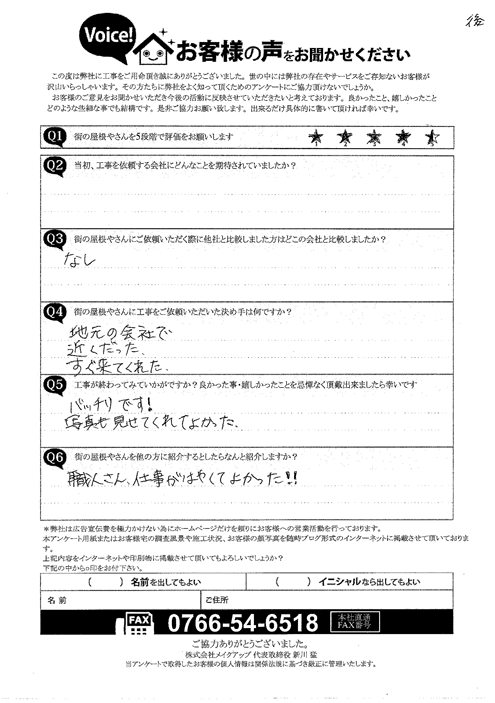 後
Voice!
お客様の声をお聞かせください
この度は弊社に工事をご用命頂き誠にありがとうございました。世の中には弊社の存在やサービスをご存知ないお客様が
沢山いらっしゃいます。その方たちに弊社をよく知って頂くためのアンケートにご協力頂けないでしょうか。
お客様のご意見をお聞かせいただき今後の活動に反映させていただきたいと考えております。良かったこと、嬉しかったこと
どのような些細な事でも結構です。是非ご協力お願い致します。出来るだけ具体的に書いて頂ければ幸いです。
Q1 街の屋根やさんを5段階で評価をお願いします
Q2 当初、工事を依頼する会社にどんなことを期待されていましたか？
Q3 街の屋根やさんにご依頼いただく際に他社と比較しました方はどこの会社と比較しましたか？
なし
Q4 街の屋根やさんに工事をご依頼いただいた決め手は何ですか？
地元の会社で
近くだった.
すぐ来てくれた.
Q5 工事が終わってみていかがですか？良かった事・嬉しかったことを忌憚なく頂戴出来ましたら幸いです
バッチリです!
写真も見せてくれてよかった.
Q6 街の屋根やさんを他の方に紹介するとしたらなんと紹介しますか？
職人さん、仕事がはやくてよかった!!
＊弊社は広告宣伝費を極力かけない為にホームページだけを頼りにお客様への営業活動を行っております。
本アンケート用紙またはお客様宅の調査風景や施工状況、お客様の顔写真を随時ブログ形式のインターネットに掲載させて頂いておりま
す。
上記内容をインターネットや印刷物に掲載させて頂いてもよろしいでしょうか？
下記の中から○印をお付下さい。
（　　）名前を出してもよい
（　　）イニシャルなら出してもよい
名 前
ご住所
FAX 0766-54-6518 本社直通 FAX番号
ご協力ありがとうございました。
株式会社メイクアップ 代表取締役 新川 猛
当アンケートで取得したお客様の個人情報は関係法規に基づき厳正に管理いたします。